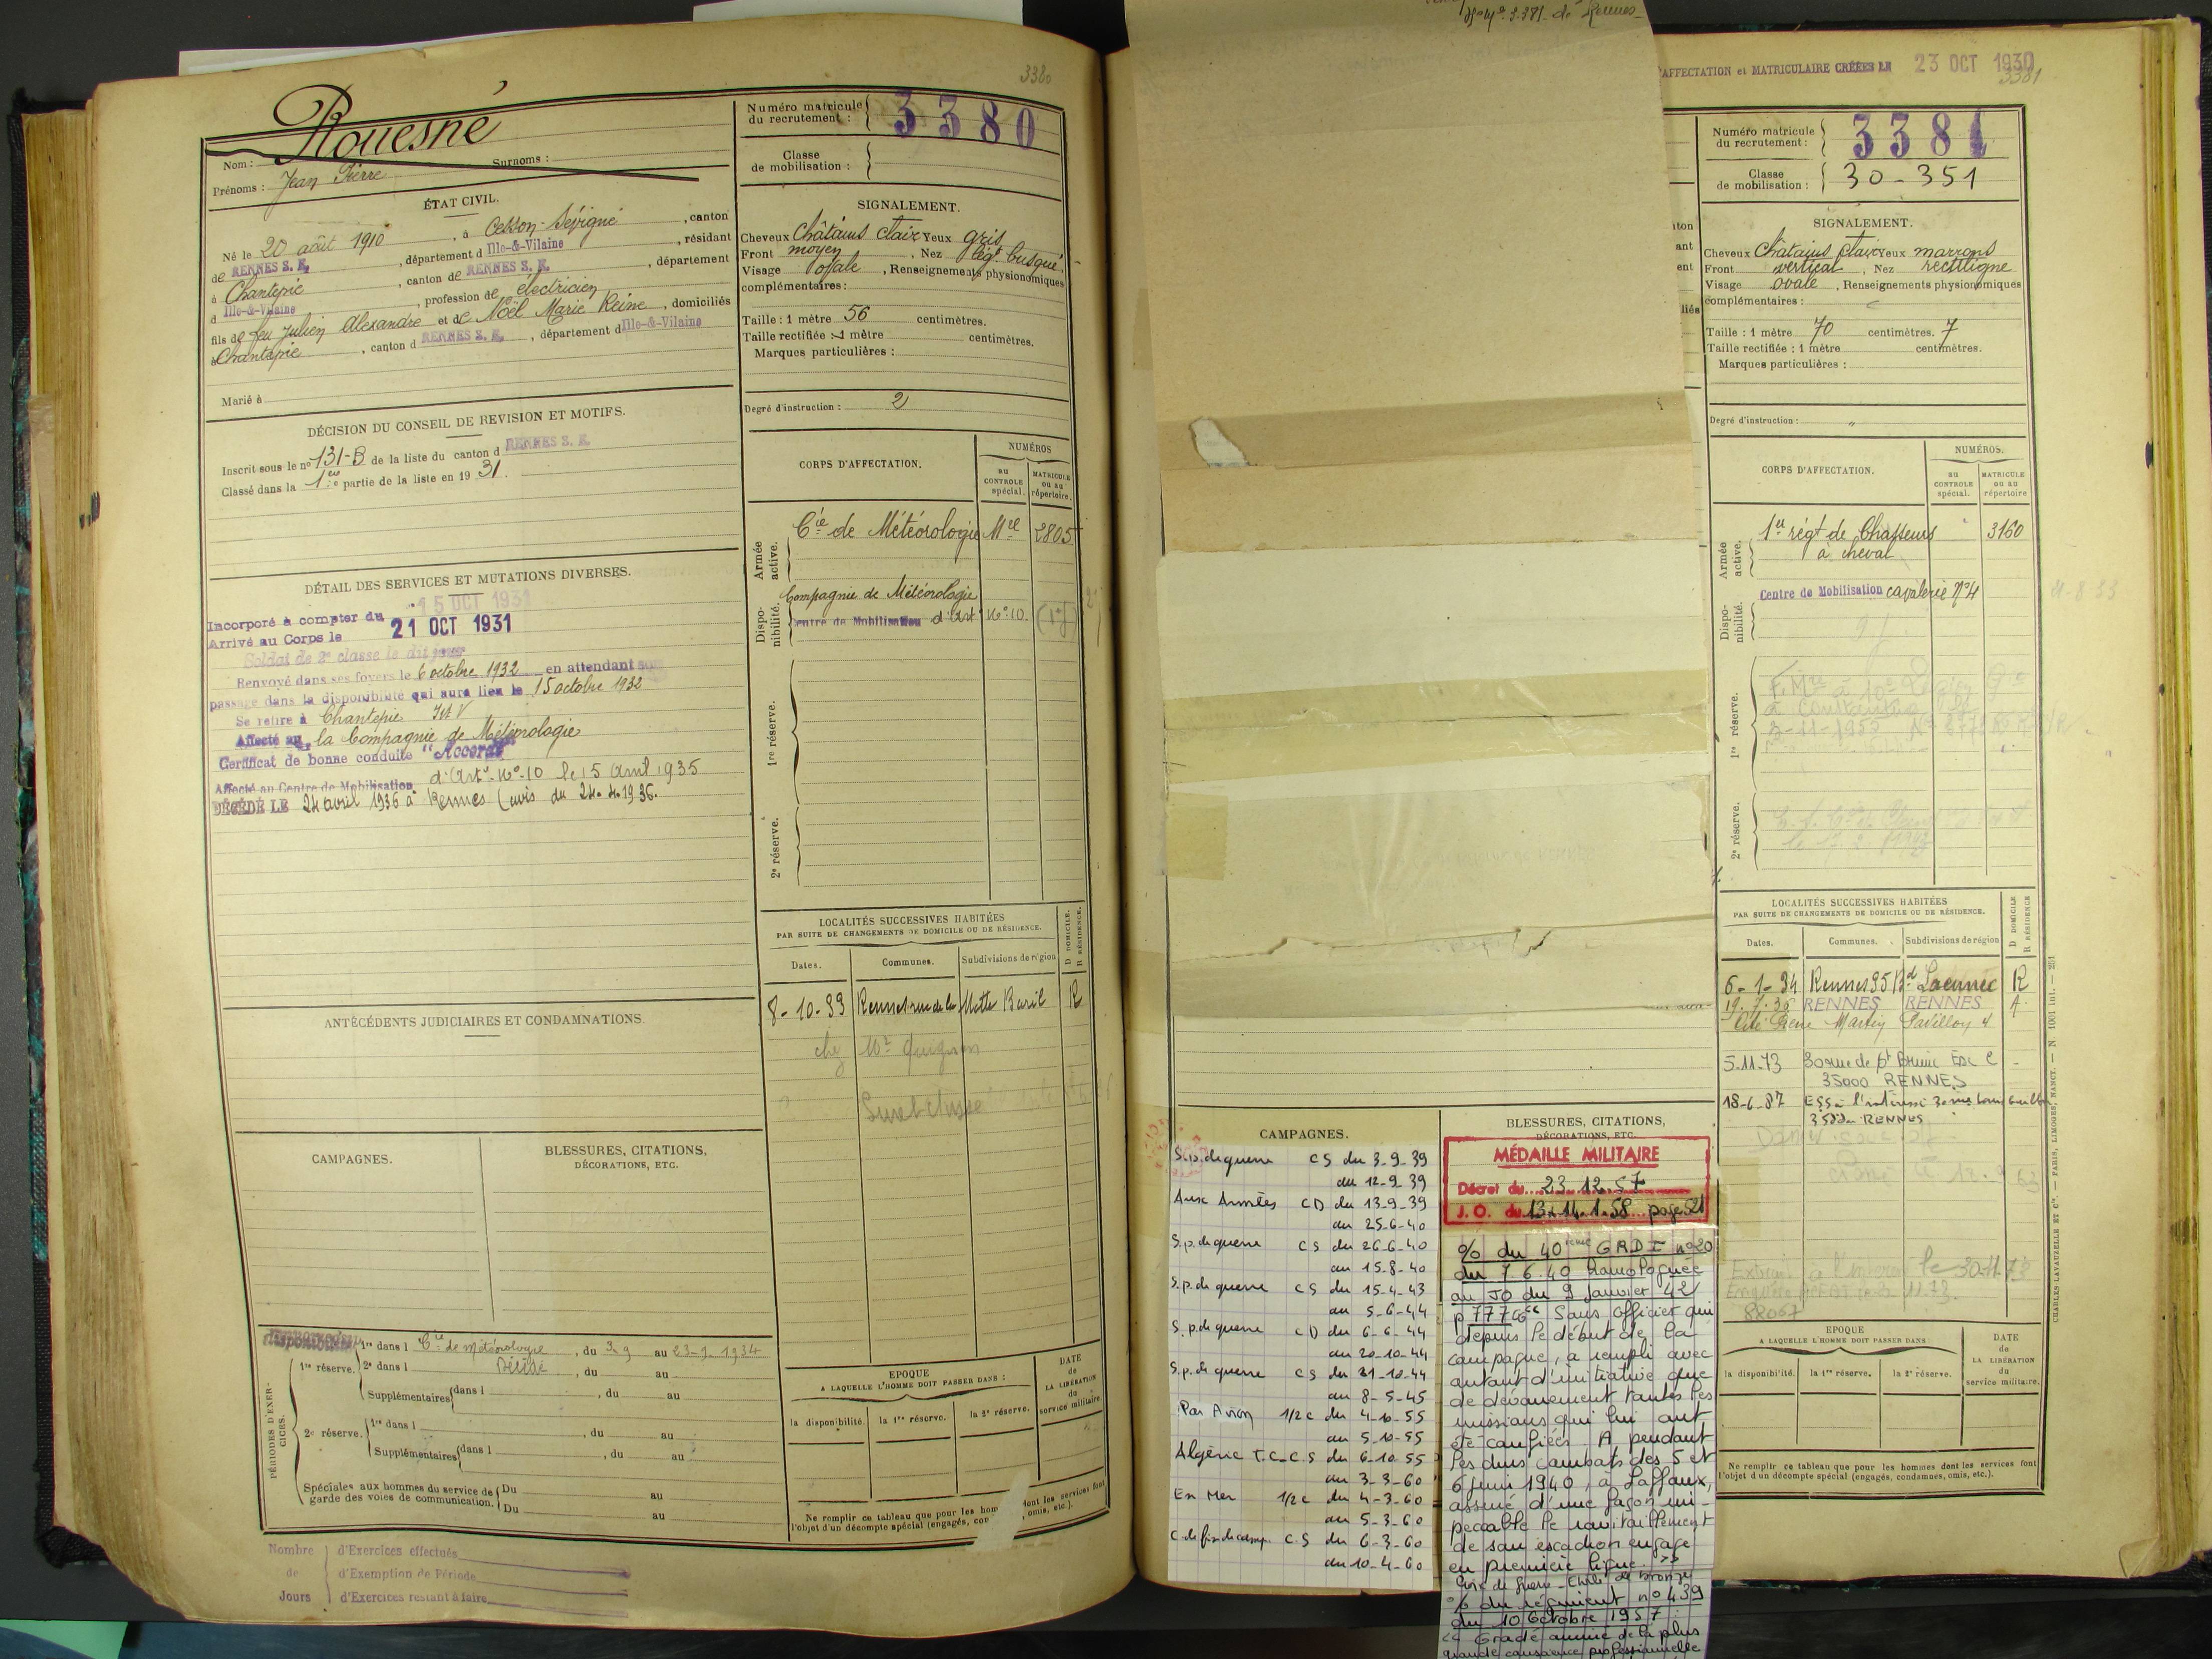 3380
Rouesné
Nom : Surnoms :
Prénoms : Jean Pierre
ÉTAT CIVIL.
Né le 20 août 1910, à Cesson-Sévigné, canton
de RENNES S. E., département d Ille-&-Vilaine, résidant
à Chantepie, canton de RENNES S. E., département
d Ille-&-Vilaine, profession de électricien
fils de feu Julien Alexandre et de Noël Marie Reine, domiciliés
à Chantepie, canton d RENNES S. E., département d Ille-&-Vilaine
Marié à
DÉCISION DU CONSEIL DE REVISION ET MOTIFS.
Inscrit sous le no 131-B de la liste du canton d RENNES S. E.
Classé dans la 1ere partie de la liste en 1931.
DÉTAIL DES SERVICES ET MUTATIONS DIVERSES.
Incorporé à compter du 15 OCT 1931
Arrivé au Corps le 21 OCT 1931
Soldat de 2e classe le dit jour
Renvoyé dans ses foyers le 6 octobre 1932 en attendant son
passage dans la disponibilité qui aura lieu le 15 octobre 1932
Se retire à Chantepie I&V
Affecté au, la Compagnie de Météorologie
Certificat de bonne conduite "Accordé"
Affecté au Centre de Mobilisation d'Artie No 10 le 15 Avril 1935
DÉCÉDÉ LE 24 avril 1936 à Rennes (avis du 24.4.1936.
ANTÉCÉDENTS JUDICIAIRES ET CONDAMNATIONS.
CAMPAGNES.
BLESSURES, CITATIONS,
DÉCORATIONS, ETC.
PÉRIODES D'EXERCICES.
disponibilité
1re réserve. 1re dans l Cie de Météorologie, du 3-9 au 23-9-1934
2e dans l Décédé, du au
Supplémentaires dans l , du au
2e réserve. 1re dans l , du au
Supplémentaires dans l , du au
Spéciales aux hommes du service de garde des voies de communication. Du au
Du au
Nombre de Jours
d'Exercices effectués
d'Exemption de Période
d'Exercices restant à faire
Numéro matricule du recrutement : 3380
Classe de mobilisation :
SIGNALEMENT.
Cheveux Châtains clair Yeux gris
Front moyen, Nez légt busqué.
Visage ovale, Renseignements physionomiques
complémentaires :
Taille : 1 mètre 56 centimètres.
Taille rectifiée : 1 mètre centimètres.
Marques particulières :
Degré d'instruction : 2
CORPS D'AFFECTATION.
NUMÉROS
au CONTROLE spécial.
MATRICULE ou au répertoire.
Armée active.
Cie de Météorologie Mle 2805
Disponibilité.
Compagnie de Météorologie
Centre de Mobilisation d'Art No 10.
1re réserve.
2e réserve.
LOCALITÉS SUCCESSIVES HABITÉES
PAR SUITE DE CHANGEMENTS DE DOMICILE OU DE RÉSIDENCE.
D DOMICILE.
R RÉSIDENCE.
Dates. Communes. Subdivisions de région
8-10-33 Rennes 1 rue de la Motte Baril R
chez Mr
EPOQUE
A LAQUELLE L'HOMME DOIT PASSER DANS :
la disponibilité. la 1re réserve. la 2e réserve.
DATE de LA LIBÉRATION du service militaire.
Ne remplir ce tableau que pour les hom dont les services font
l'objet d'un décompte spécial (engagés, con , omis, etc.).
No Mle 3.381 de Rennes
AFFECTATION et MATRICULAIRE CRÉÉES LE 23 OCT 1930
3381
Numéro matricule du recrutement : 3381
Classe de mobilisation : 30-351
SIGNALEMENT.
Cheveux Châtains clair Yeux marrons
Front vertical, Nez rectiligne
Visage ovale, Renseignements physionomiques
complémentaires :
Taille : 1 mètre 70 centimètres. 7
Taille rectifiée : 1 mètre centimètres.
Marques particulières :
Degré d'instruction : "
CORPS D'AFFECTATION.
NUMÉROS.
au CONTROLE spécial.
MATRICULE ou au répertoire
Armée active.
1er régt de Chasseurs à cheval 3160
Disponibilité.
Centre de Mobilisation cavalerie No 4
1re réserve.
2e réserve.
LOCALITÉS SUCCESSIVES HABITÉES
PAR SUITE DE CHANGEMENTS DE DOMICILE OU DE RÉSIDENCE.
D DOMICILE
R RÉSIDENCE
Dates. Communes. Subdivisions de région
6-1-34 Rennes 95 Bd Laennec R
19.7.36 RENNES RENNES
Pavillon 4
5.11.73 30 rue de St Brieuc Esc C
35000 RENNES
18-6-87
RENNES
EPOQUE
A LAQUELLE L'HOMME DOIT PASSER DANS :
la disponibilité. la 1re réserve. la 2e réserve.
DATE de LA LIBÉRATION du service militaire.
Ne remplir ce tableau que pour les hommes dont les services font
l'objet d'un décompte spécial (engagés, condamnés, omis, etc.).
CHARLES-LAVAUZELLE ET Cie. — PARIS, LIMOGES, NANCY. — N 1001 int. — 251
CAMPAGNES.
S.p. de guerre CS du 3-9-39
au 12-9-39
Aux Armées CD du 13-9-39
au 25-6-40
S.p. de guerre CS du 26-6-40
au 15-8-40
S.p. de guerre CS du 15-4-43
au 5-6-44
S.p. de guerre CD du 6-6-44
au 20-10-44
S.p. de guerre CS du 21-10-44
au 8-5-45
Par Avion 1/2 C du 4-10-55
au 5-10-55
Algérie T.C-C.S du 6-10-55
au 3-3-60
En Mer 1/2 C du 4-3-60
au 5-3-60
C. de fin de camp. C.S du 6-3-60
au 10-4-60
BLESSURES, CITATIONS,
DÉCORATIONS, ETC.
MÉDAILLE MILITAIRE
Décret du 23.12.57
J.O. du 13-14-1-58 page 521
% du 40eme GRDI no 20
du 7.6.40 homologuée
au JO du 9 Janvier 42
p 177 "Sous officier qui
depuis le début de la
campagne, a rempli avec
autant d'initiative que
de dévouement toutes les
missions qui lui ont
été confiées. A pendant
les durs combats des 5 et
6 juin 1940, à Laffaux,
assuré d'une façon im-
peccable le ravitaillement
de son escadron engagé
en première ligne."
Croix de Guerre - Etoile de bronze
% du régiment no 439
du 10 Octobre 1957
"Gradé animé de la plus
grande conscience professionnelle